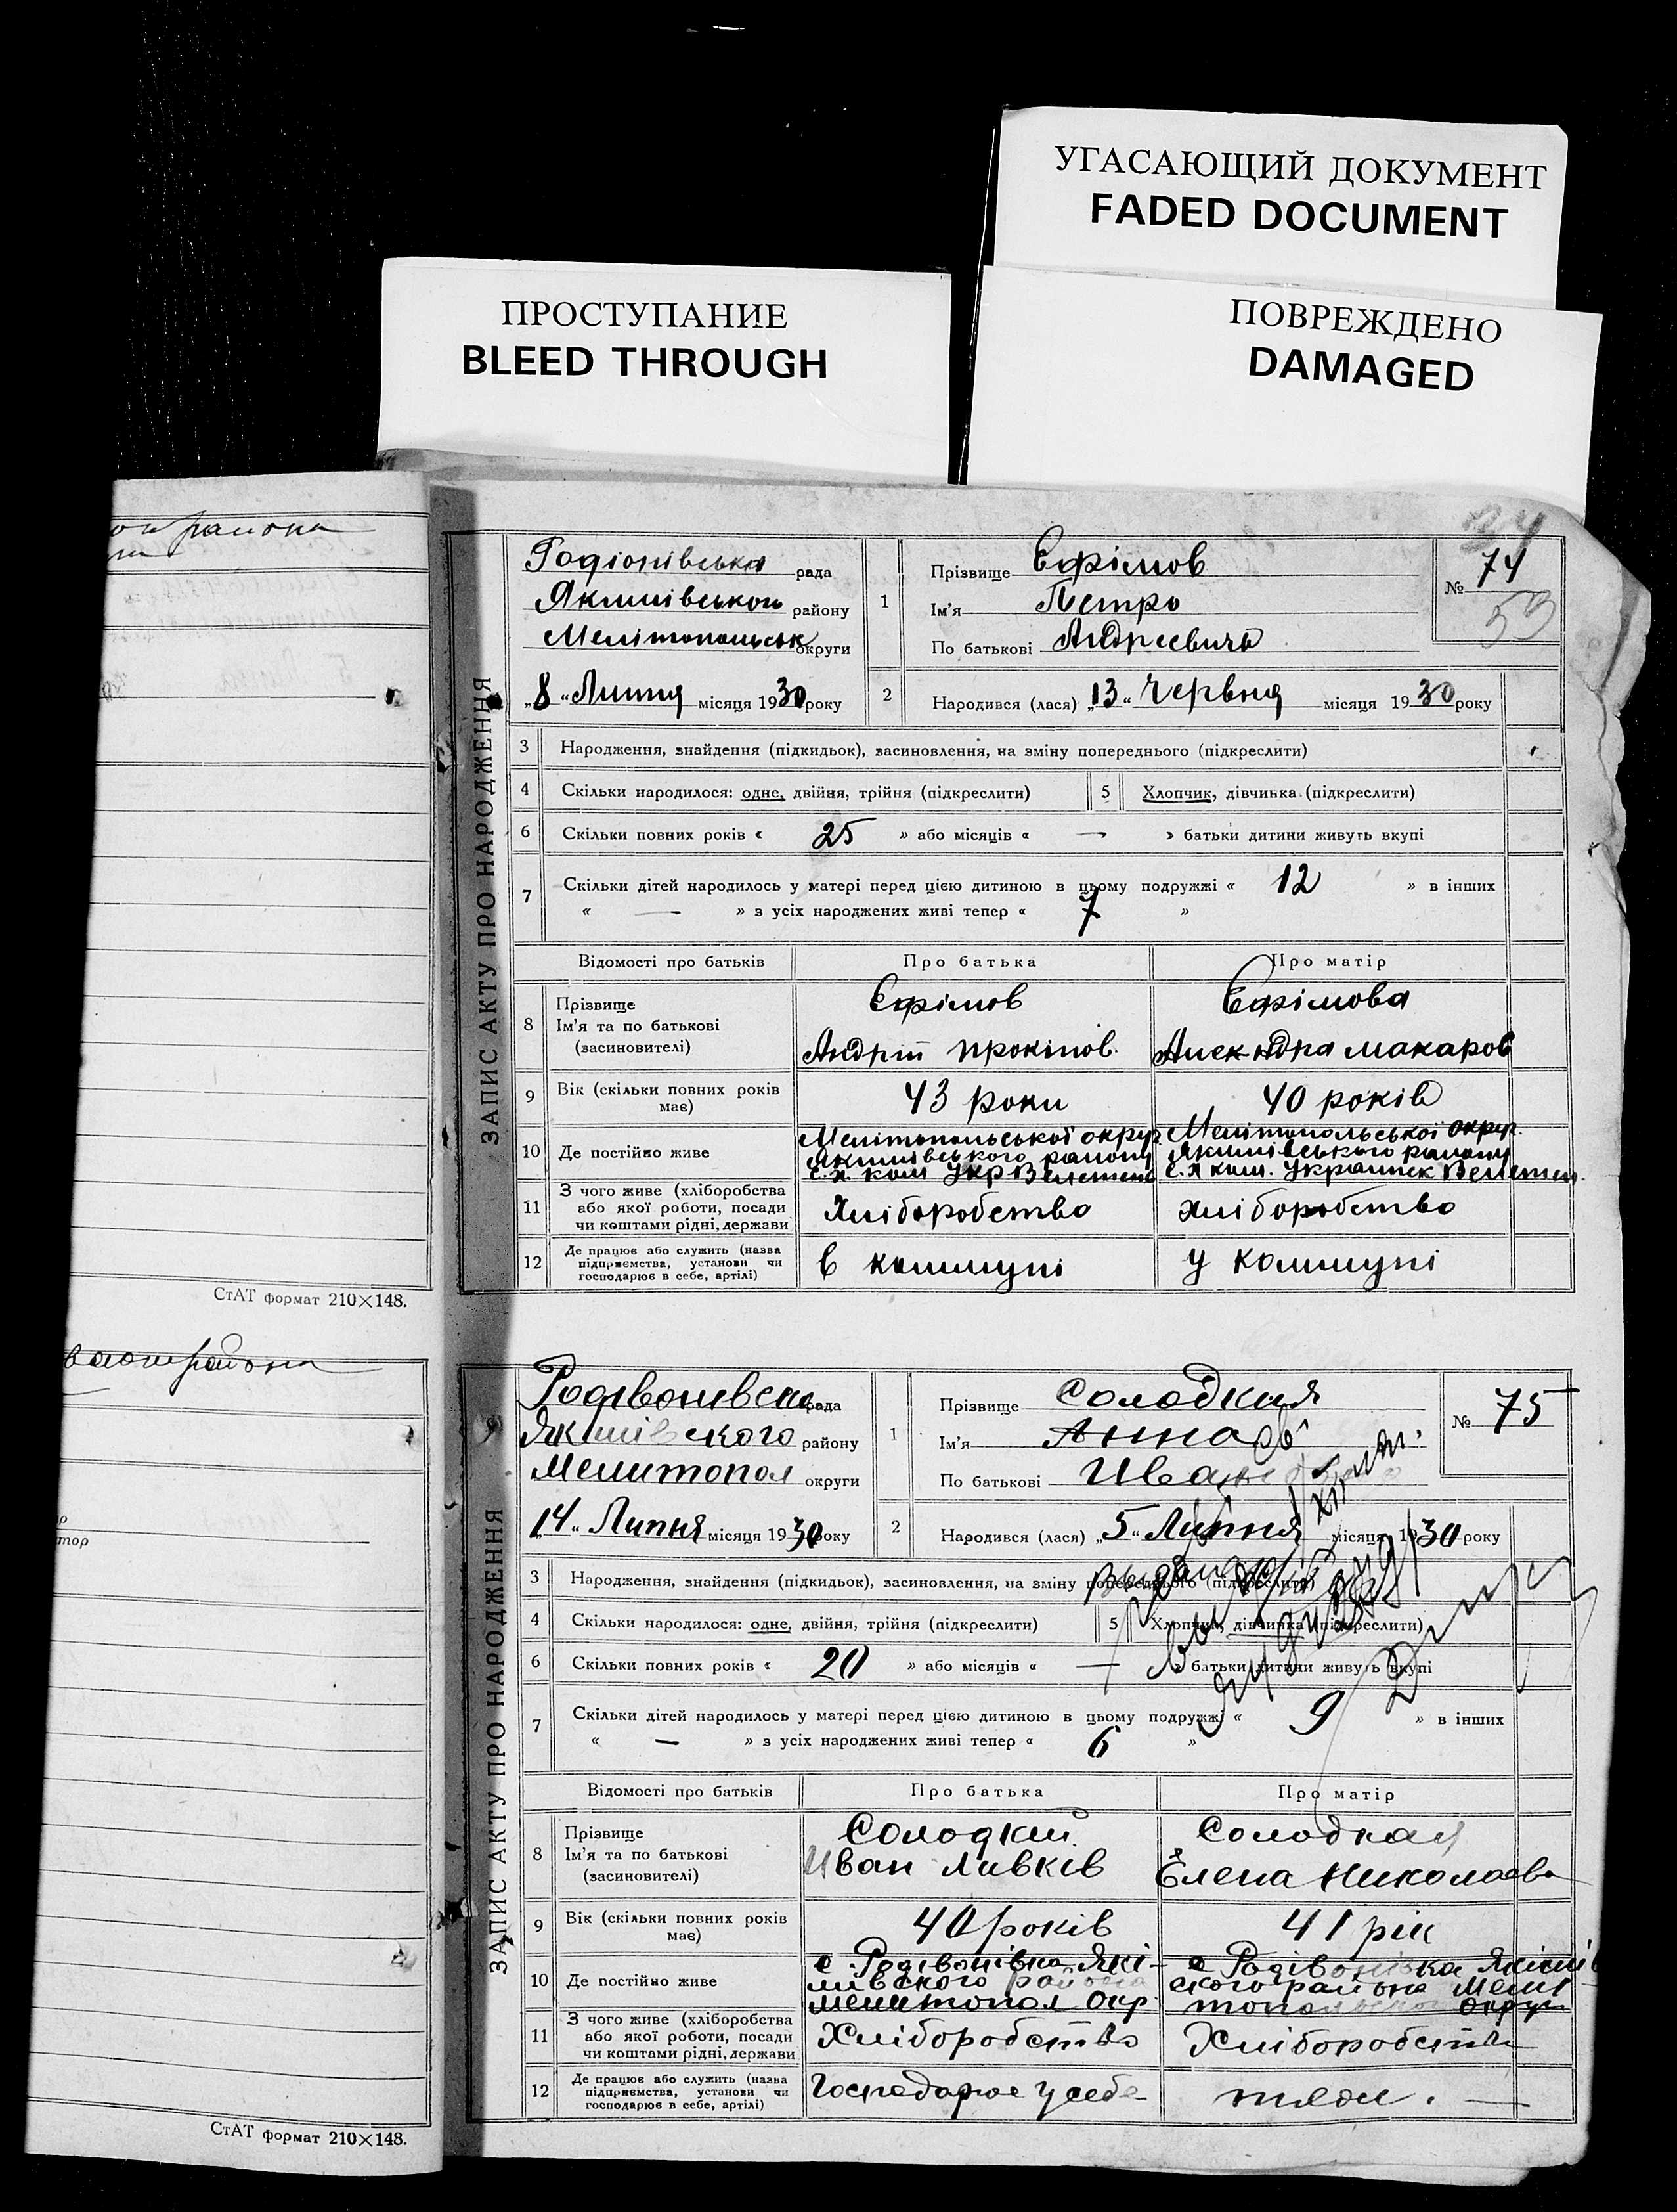 УГАСАЮЩИЙ ДОКУМЕНТ
FADED DOCUMENT
ПРОСТУПАНИЕ
BLEED THROUGH
ПОВРЕЖДЕНО
DAMAGED
района
СтАТ формат 210×148.
района
СтАТ формат 210×148.
ЗАПИС АКТУ ПРО НАРОДЖЕННЯ
Родіонівська рада
Якимівського району
Мелітопольськ округи
„8“ Липня місяця 1930 року
1 Прізвище Єфімов
Ім'я Петро
По батькові Андреевичь
№ 74
53
2 Народився (лася) „13“ Червня місяця 1930 року
3 Народження, знайдення (підкидьок), засиновлення, на зміну попереднього (підкреслити)
4 Скільки народилося: одне, двійня, трійня (підкреслити) 5 Хлопчик, дівчинка (підкреслити)
6 Скільки повних років « 25 » або місяців « — » батьки дитини живуть вкупі
7 Скільки дітей народилось у матері перед цією дитиною в цьому подружжі « 12 » в інших
« — » з усіх народжених живі тепер « 7 »
Відомості про батьків Про батька Про матір
8 Прізвище Єфімов Єфімова
Ім'я та по батькові
(засиновителі) Андрій Прокіпов. Александра Макаров
9 Вік (скільки повних років має) 43 роки 40 років
10 Де постійно живе Мелітопольської округ. Мелітопольської округ.
Якимівського району Якимівського району
с.х. ком Укр Велетень с.х ком. Украинск Велетен.
11 З чого живе (хліборобства
або якої роботи, посади Хліборобство хліборобство
чи коштами рідні, держави
12 Де працює або служить (назва
підприємства, установи чи в коммуні у коммуні
господарює в себе, артілі)
ЗАПИС АКТУ ПРО НАРОДЖЕННЯ
Родівонівська рада
Якимівского району
Мелитопол округи
„14“ Липня місяця 1930 року
1 Прізвище Солодкая
Ім'я Анна
По батькові Ивановна
№ 75
2 Народився (лася) „5“ Липня місяця 1930 року
3 Народження, знайдення (підкидьок), засиновлення, на зміну попереднього (підкреслити)
4 Скільки народилося: одне, двійня, трійня (підкреслити) 5 Хлопчик, дівчинка (підкреслити)
6 Скільки повних років « 20 » або місяців « — » батьки дитини живуть вкупі
7 Скільки дітей народилось у матері перед цією дитиною в цьому подружжі « 9 » в інших
« — » з усіх народжених живі тепер « 6 »
Відомості про батьків Про батька Про матір
8 Прізвище Солодкий Солодкая
Ім'я та по батькові Иван Ливків Елена Николаевa
(засиновителі)
9 Вік (скільки повних років має) 40 років 41 рік
10 Де постійно живе с. Родівонівка Які- с Родівонівка Якимів
мівского района ского района Мелі
мелитопол окр. топольскои округи
11 З чого живе (хліборобства
або якої роботи, посади Хліборобство Хліборобства
чи коштами рідні, держави
12 Де працює або служить (назва
підприємства, установи чи Господарює у себе
господарює в себе, артілі)